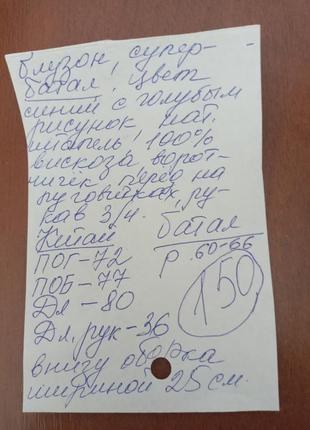 блузон, супер-
батал, цвет
синий с голубым
рисунок, мат.
штапель, 100%
вискоза, ворот-
ничёк, перед на
пуговицах, ру-
кав 3/4.
Китай батал
ПОГ-72 р. 60-66
ПОБ-77 150
Дл-80
Дл. рук-36
внизу оборка
шириной 25 см.